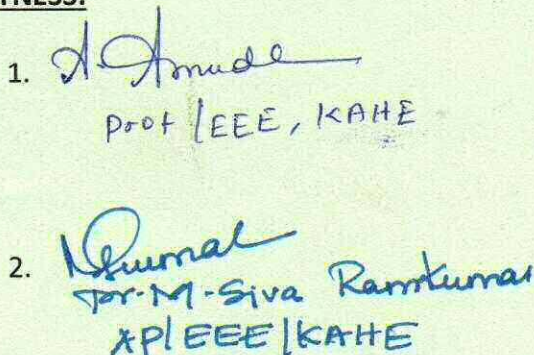 TNESS:
1. A. Amudha
Prof / EEE, KAHE
2.
Dr. M. Siva Ramkumar
AP / EEE / KAHE